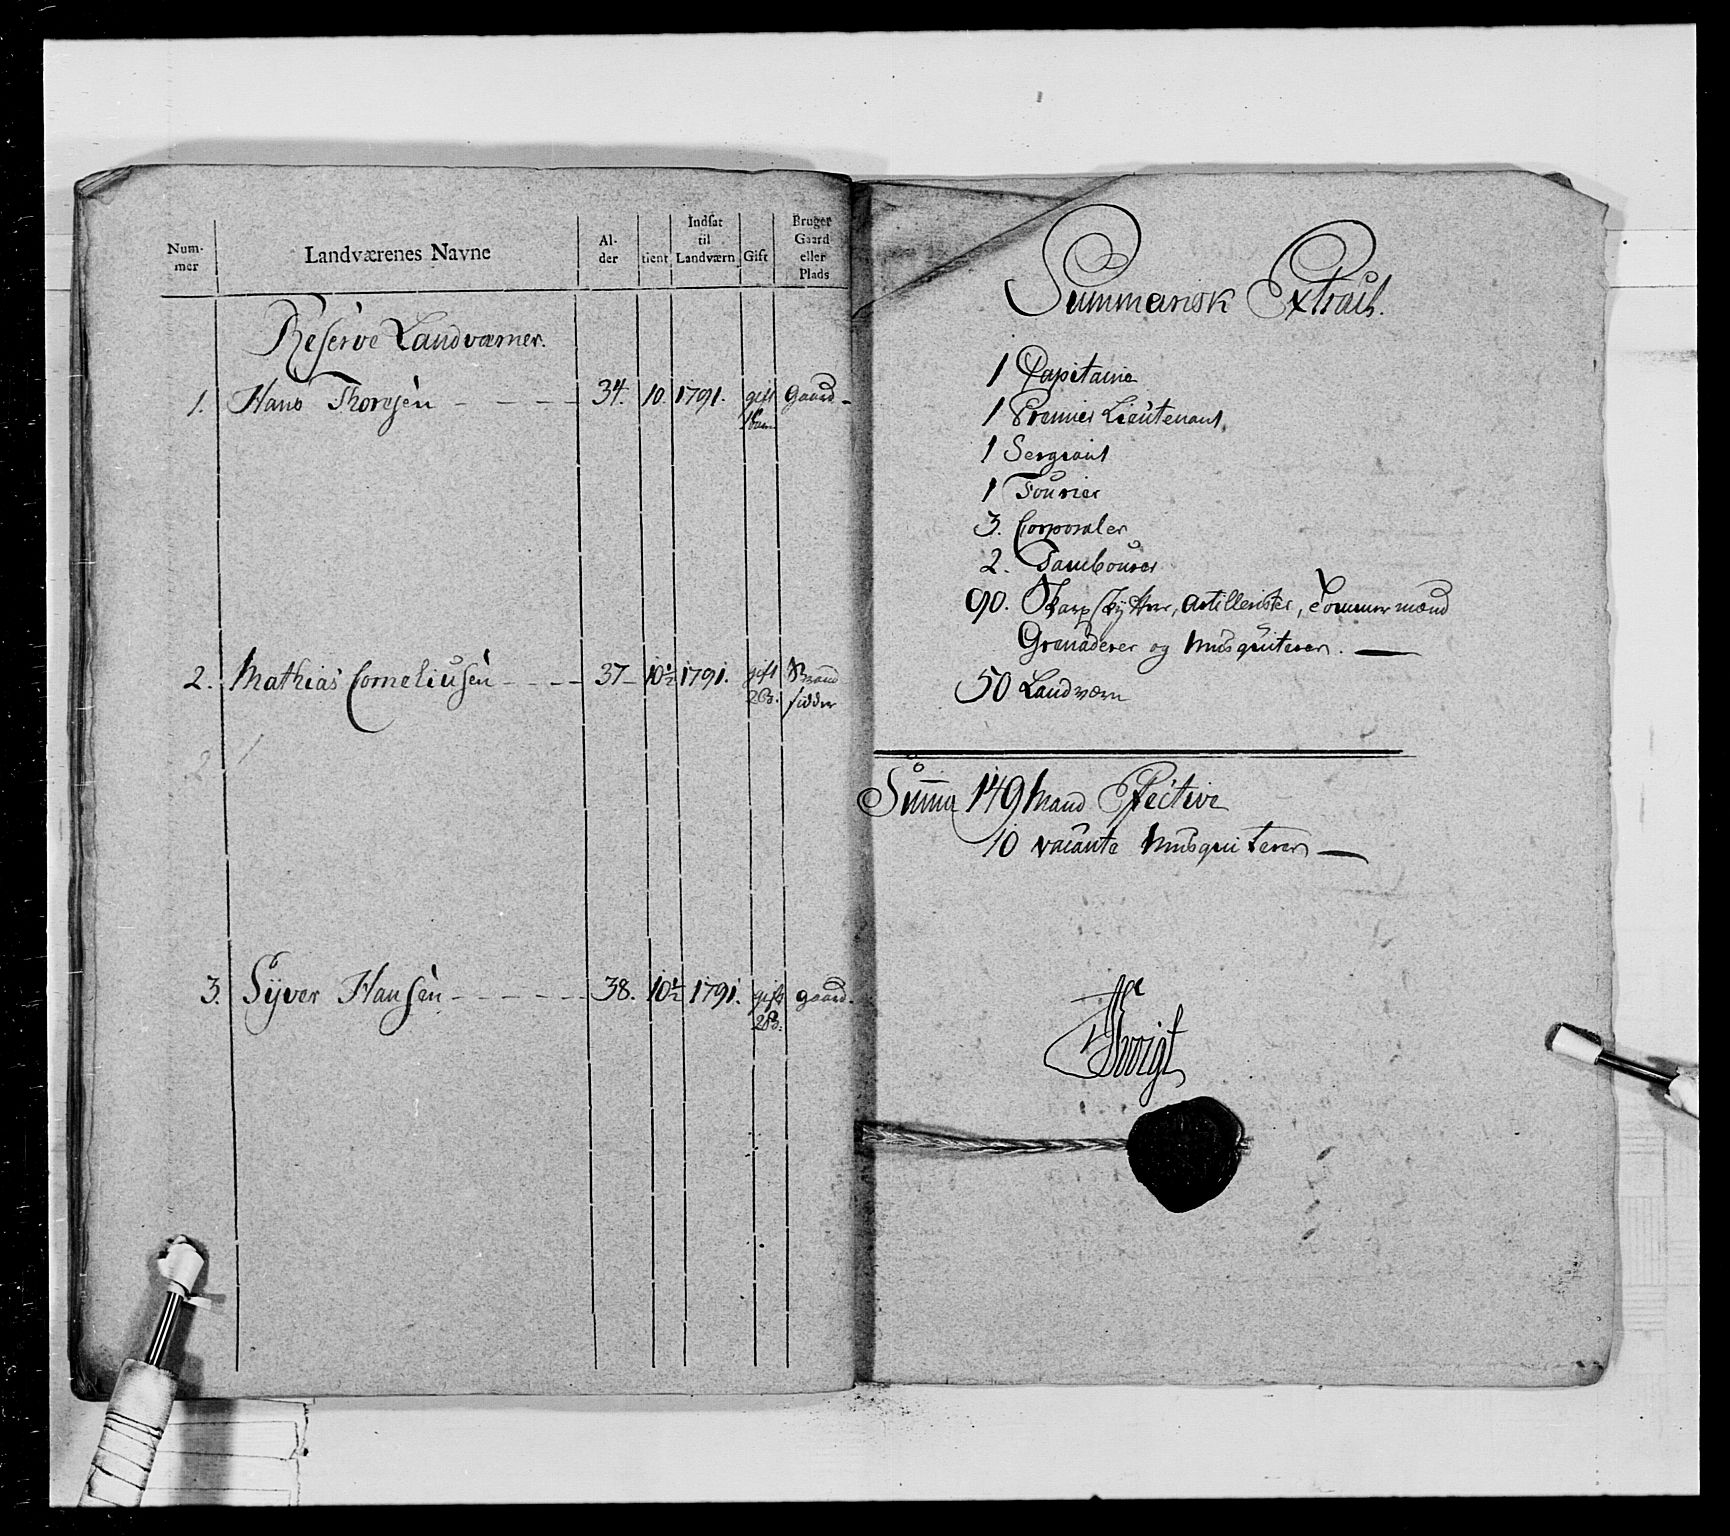 Num-
mer
Landværenes Navne
Al-
der
tient
Indsat
til
Landværn
Gift
Bruger
Gaard
eller
Plads
Reserve Landværner.
1. Hans Thoresen 34. 10. 1791. gift Gaard
2. Mathias Corneliusen 37 10½ 1791. gift
2 B. sidder
3. Syver Hansen 38. 10½ 1791. gift gaard.
2 B.
Summarisk Extract.
1 Capitaine
1 Premier Lieutenant,
1 Sergiant
1 Fourier
3. Corporaler
2. Tambourer
90. Skarpskytter, Artillerister, Tømmermænd
Granaderer og Musquiterer.
50 Landværn
Suma 149 Mand Effective
10 vacante Musquiterer
Voigt